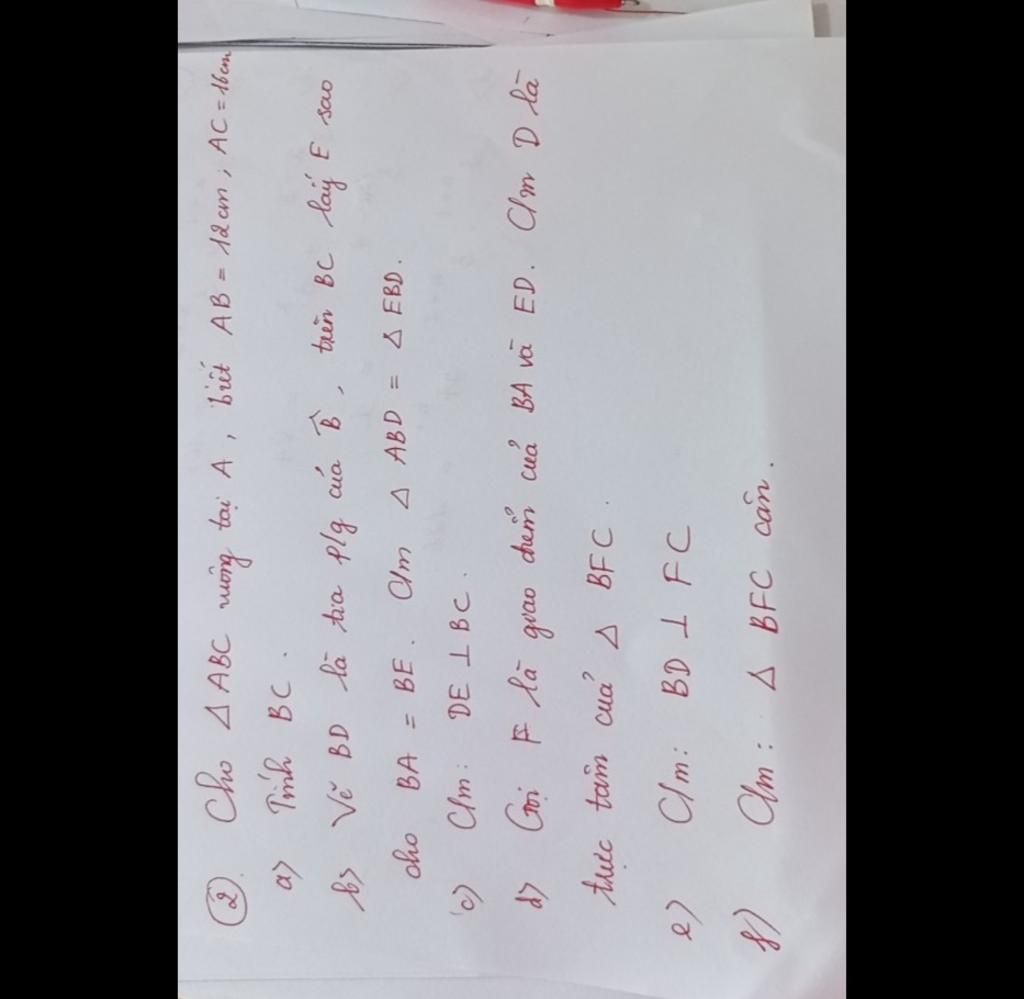 ② Cho △ ABC vuông tại A, biết AB = 12cm; AC = 16cm
a) Tính BC.
b) Vẽ BD là tia p/g của B̂, trên BC lấy E sao
cho BA = BE. C/m △ ABD = △ EBD.
c) C/m: DE ⊥ BC.
d) Gọi F là giao điểm của BA và ED. C/m D là
trực tâm của △ BFC.
e) C/m: BD ⊥ FC
f) C/m: △ BFC cân.